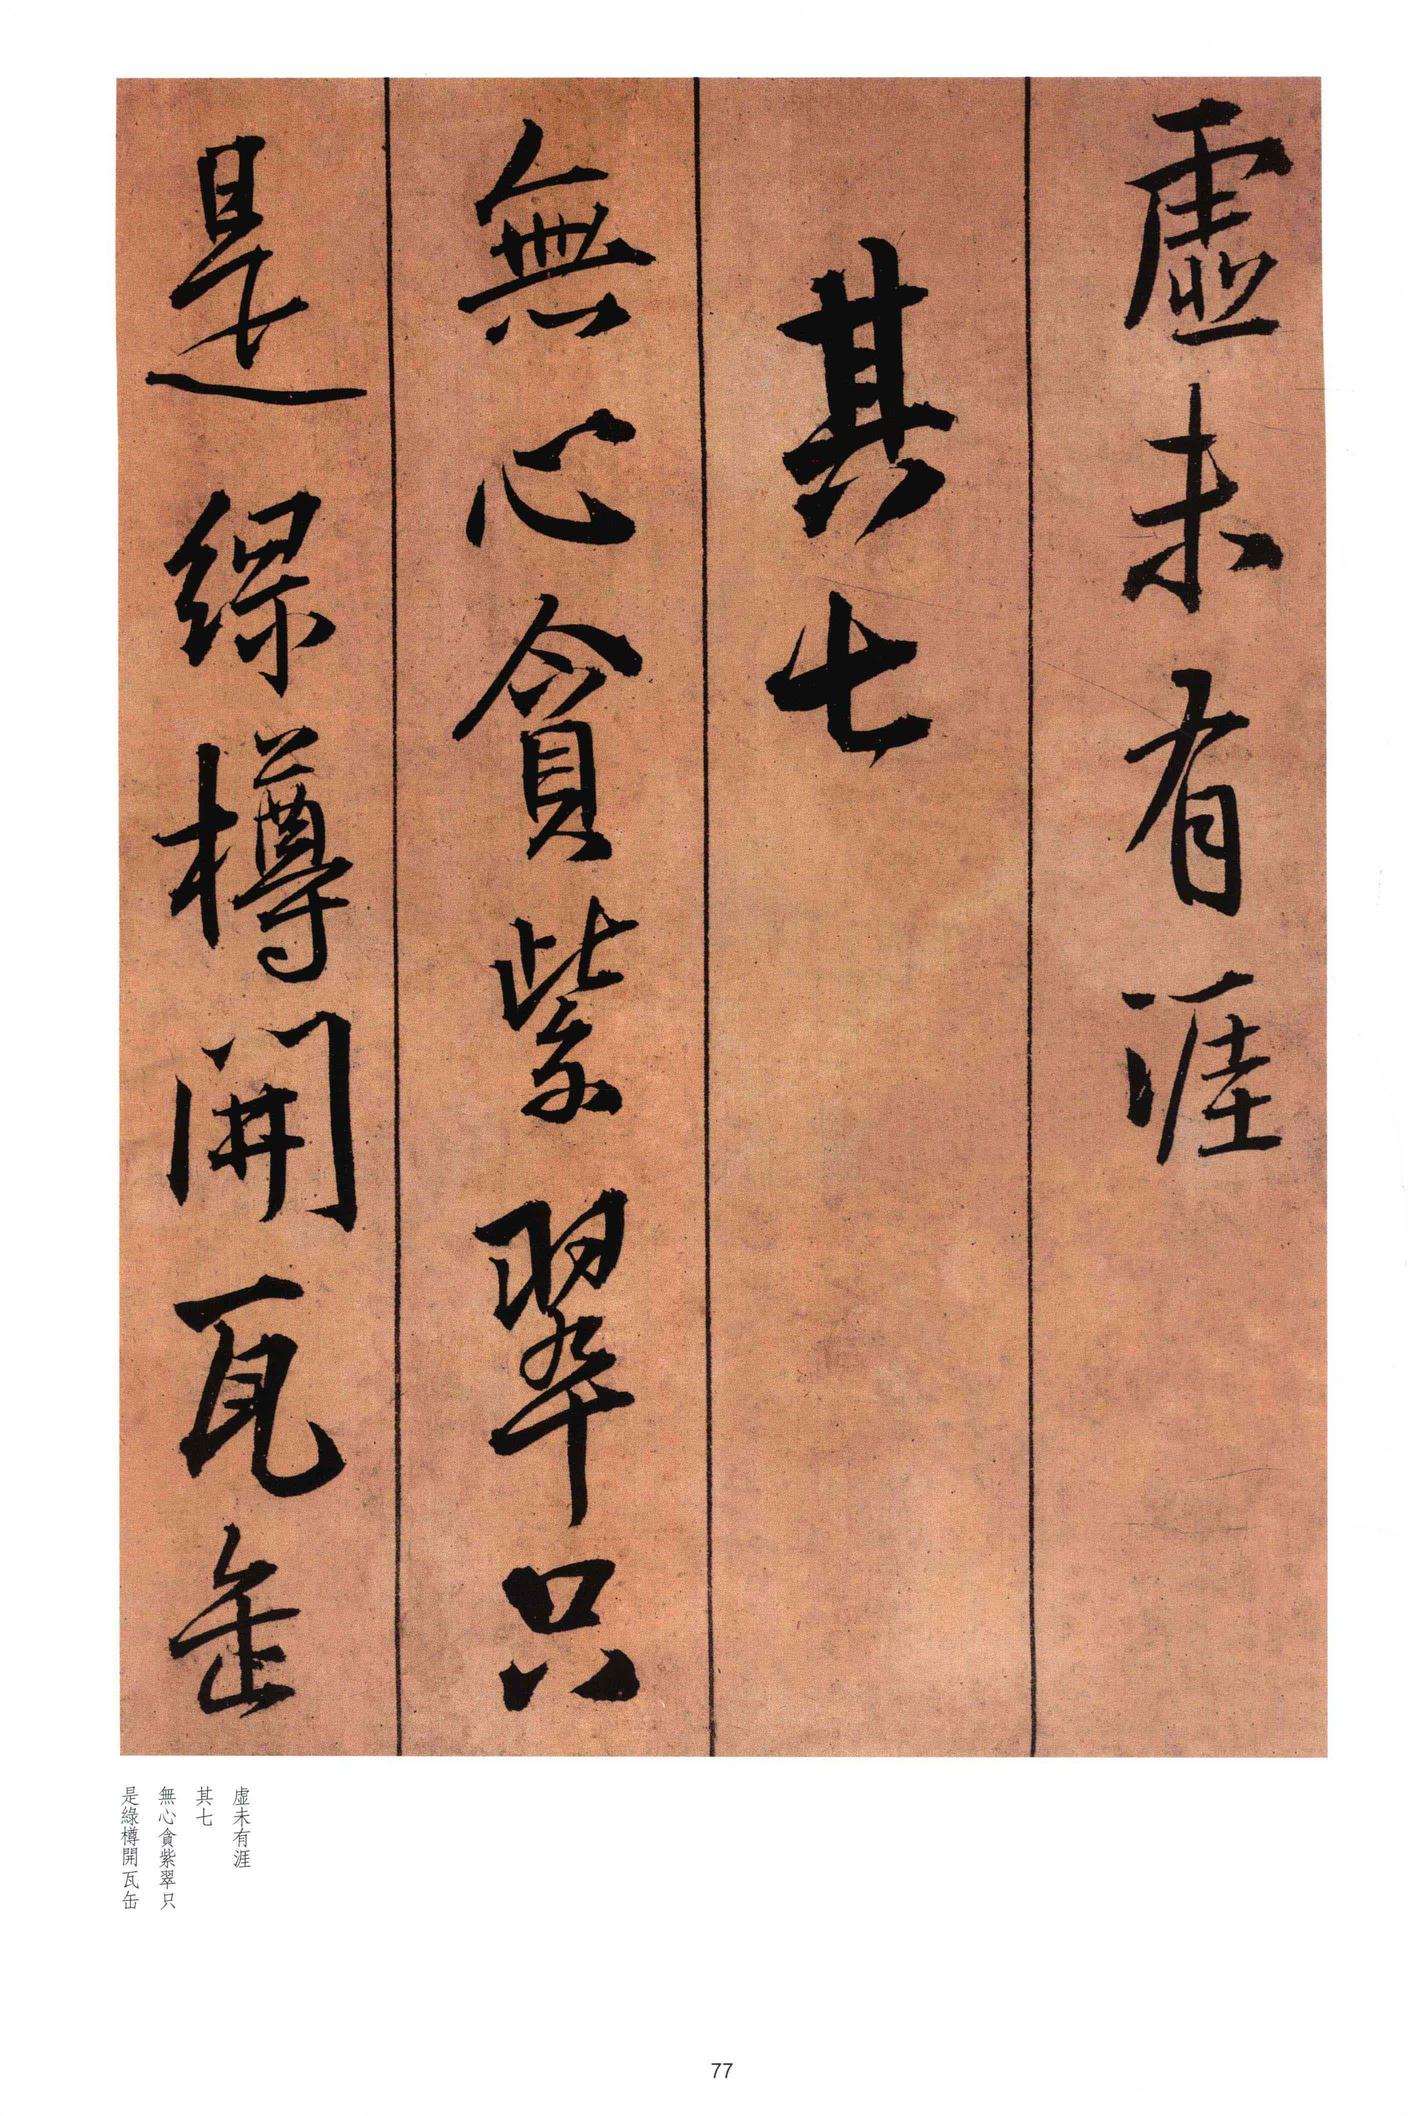 虛未有涯
其七
無心貪紫翠只
是綠樽開瓦缶
虛未有涯
其七
無心貪紫翠只
是綠樽開瓦缶
77